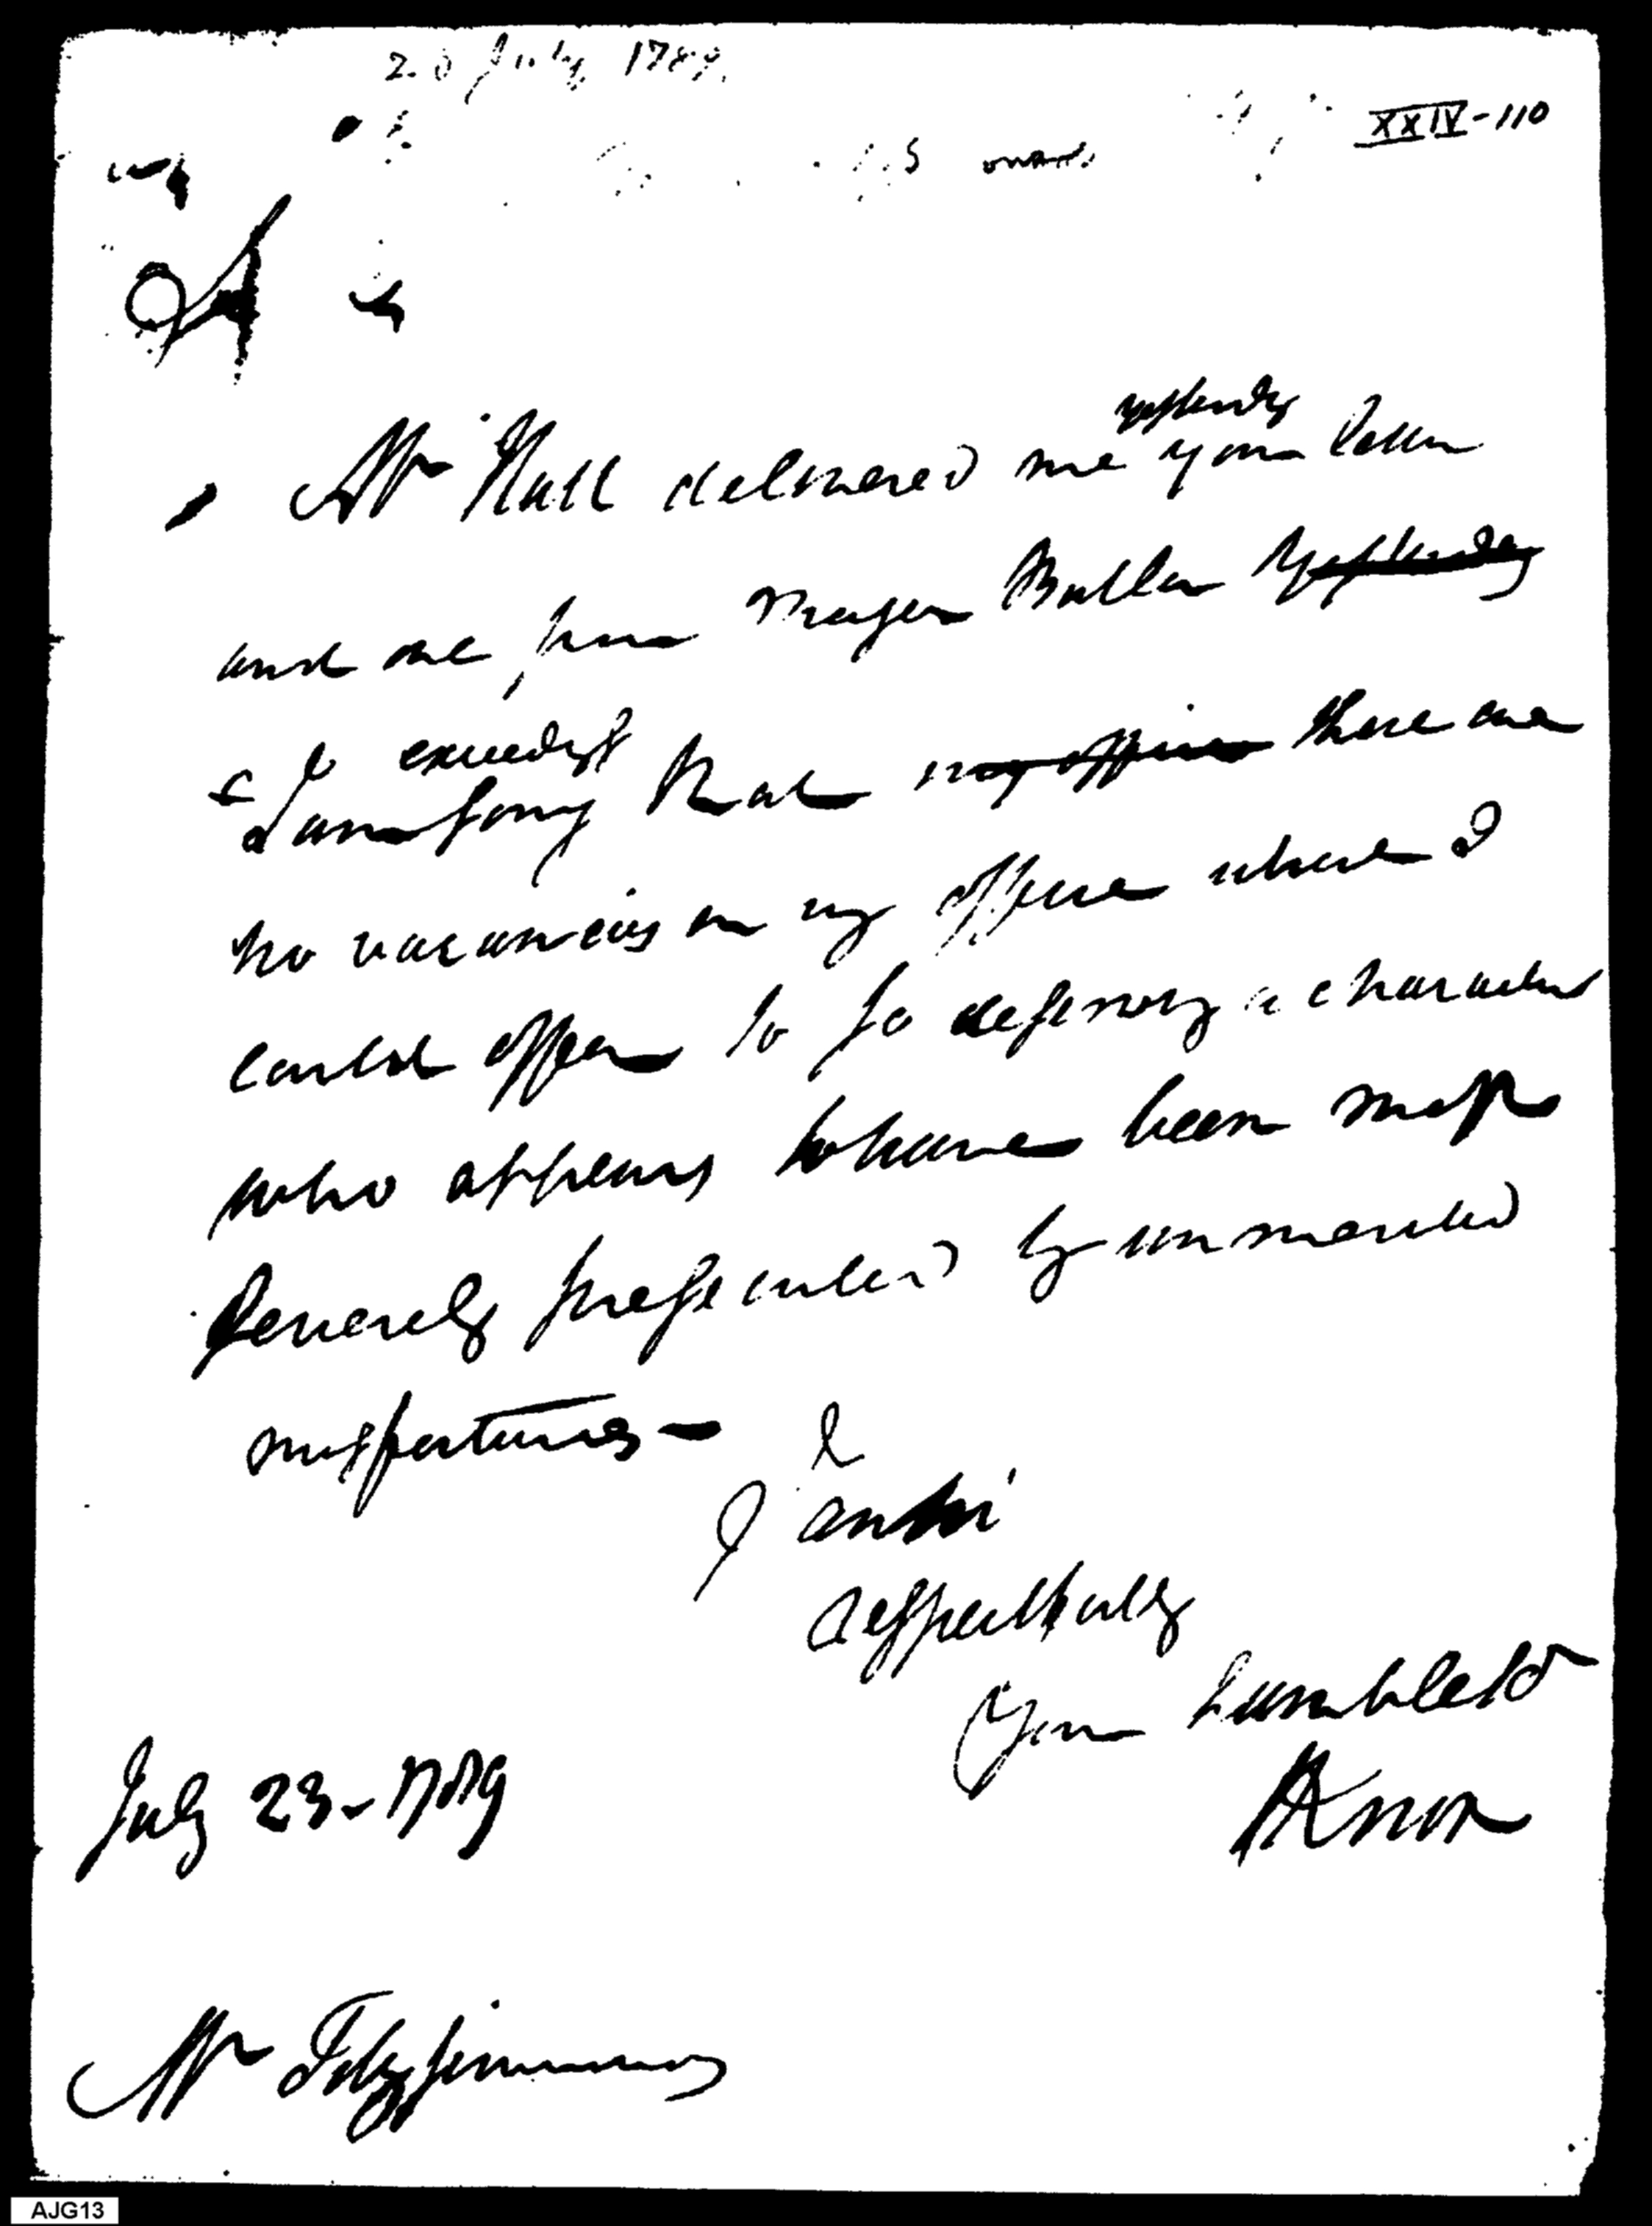 23 July 1789.
XXIV-110
Sir
yesterday
Mr Hall delivered me your letter
and one from Major Butler Yesterday
exceedingly
& I am sorry that my office there are
no vacancies in my office which I
could offer to so deserving a character
who appears to have been most
severely persecuted by unmerited
misfortunes—
I am Sir
respectfully
Your humble
HKnox
July 23- 1789
Mr Fitzsimmons
AJG13